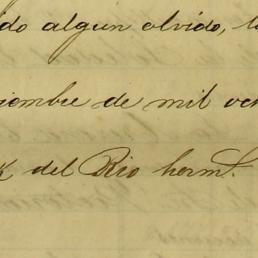 do algun olvido, l
iembre de mil och
del Rio herm.